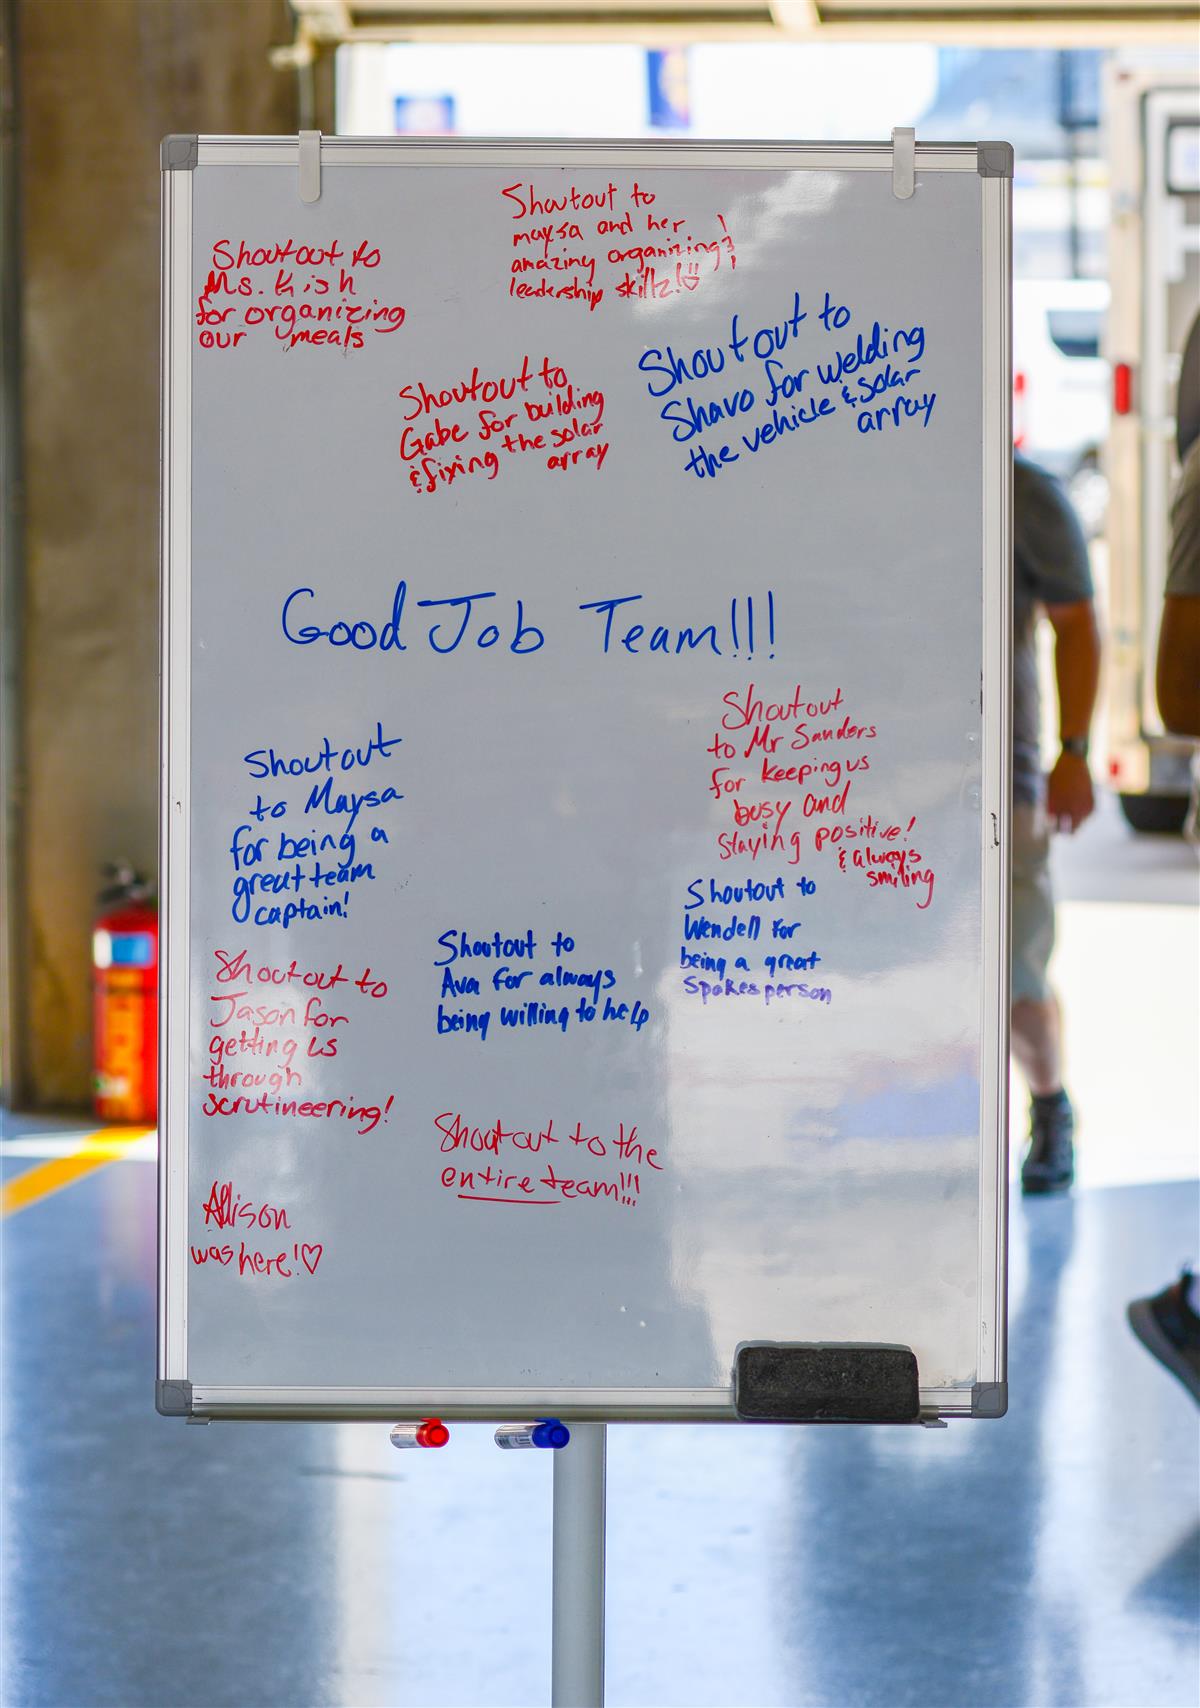 Shoutout to
maysa and her
amazing organizing &
leadership skillz!!
Shoutout to
Ms. Kish
for organizing
our meals
Shoutout to
Gabe for building
& fixing the solar
array
Shoutout to
Shavo for welding
the vehicle & solar
array
Good Job Team!!!
Shoutout
to Maysa
for being a
great team
captain!
Shoutout
to Mr Sanders
for keeping us
busy and
staying positive!
& always
smiling
Shoutout to
Wendell for
being a great
Spokesperson
Shoutout to
Ava for always
being willing to help
Shoutout to
Jason for
getting us
through
scrutineering!
Shoutout to the
entire team!!!
Allison
was here!♡